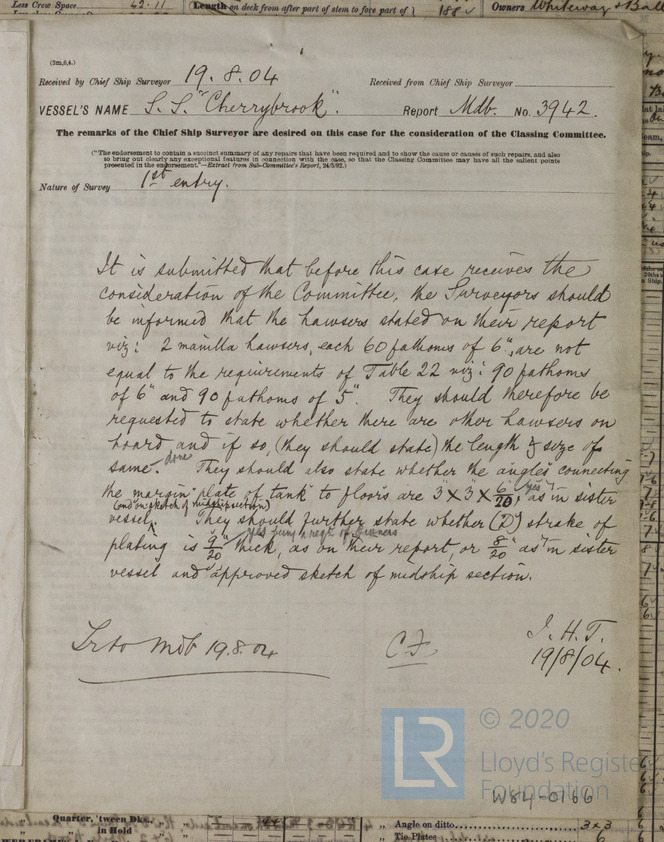 Less Crew Space 42.11
Length on deck from after part of stem to fore part of
188
Owners Whiteway & Ball
(2m,6,4.)
Received by Chief Ship Surveyor 19.8.04
Received from Chief Ship Surveyor
VESSEL'S NAME S.S. "Cherrybrook". Report Mdb. No. 3942.
The remarks of the Chief Ship Surveyor are desired on this case for the consideration of the Classing Committee.
("The endorsement to contain a succinct summary of any repairs that have been required and to show the cause or causes of such repairs, and also
to bring out clearly any exceptional features in connection with the case, so that the Classing Committee may have all the salient points
presented in the endorsement."—Extract from Sub-Committee's Report, 24/5/92.)
Nature of Survey 1st entry.
It is submitted that before this case receives the
consideration of the Committee, the Surveyors should
be informed that the hawsers stated on their report
viz: 2 manilla hawsers, each 60 fathoms of 6", are not
equal to the requirements of Table 22 viz: 90 fathoms
of 6" and 90 fathoms of 5". They should therefore be
requested to state whether there are other hawsers on
board and if so, (they should state) the length & size of
same. done They should also state whether the angles connecting
the margin plate of tank to floors are 3" x 3" x 6/20", yes as in sister
(and on sketch of midship section)
vessel. They should further state whether (D) strake of
yes being a reqt of Owners
plating is 9/20" thick, as on their report, or 8/20" as in sister
vessel and approved sketch of midship section.
Lr to Mdb 19.8.04
J.H.T.
19/8/04.
© 2020
LR
Lloyd's Registe
Foundation
W84-0166
Quarter, 'tween Dks.,
in Hold
Angle on ditto 3x3
Tie Plates 6